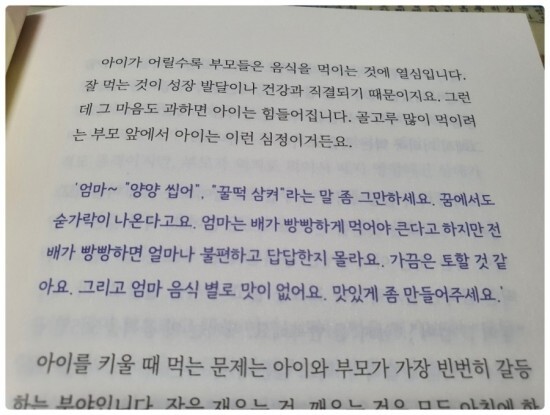 아이가 어릴수록 부모들은 음식을 먹이는 것에 열심입니다.
잘 먹는 것이 성장 발달이나 건강과 직결되기 때문이지요. 그런
데 그 마음도 과하면 아이는 힘들어집니다. 골고루 많이 먹이려
는 부모 앞에서 아이는 이런 심정이거든요.
'엄마~ "얌얌 씹어", "꿀떡 삼켜"라는 말 좀 그만하세요. 꿈에서도
숟가락이 나온다고요. 엄마는 배가 빵빵하게 먹어야 큰다고 하지만 전
배가 빵빵하면 얼마나 불편하고 답답한지 몰라요. 가끔은 토할 것 같
아요. 그리고 엄마 음식 별로 맛이 없어요. 맛있게 좀 만들어주세요.'
아이를 키울 때 먹는 문제는 아이와 부모가 가장 빈번히 갈등
하는 분야입니다. 잠을 재우는 것, 깨우는 것은 모두 아침에 한